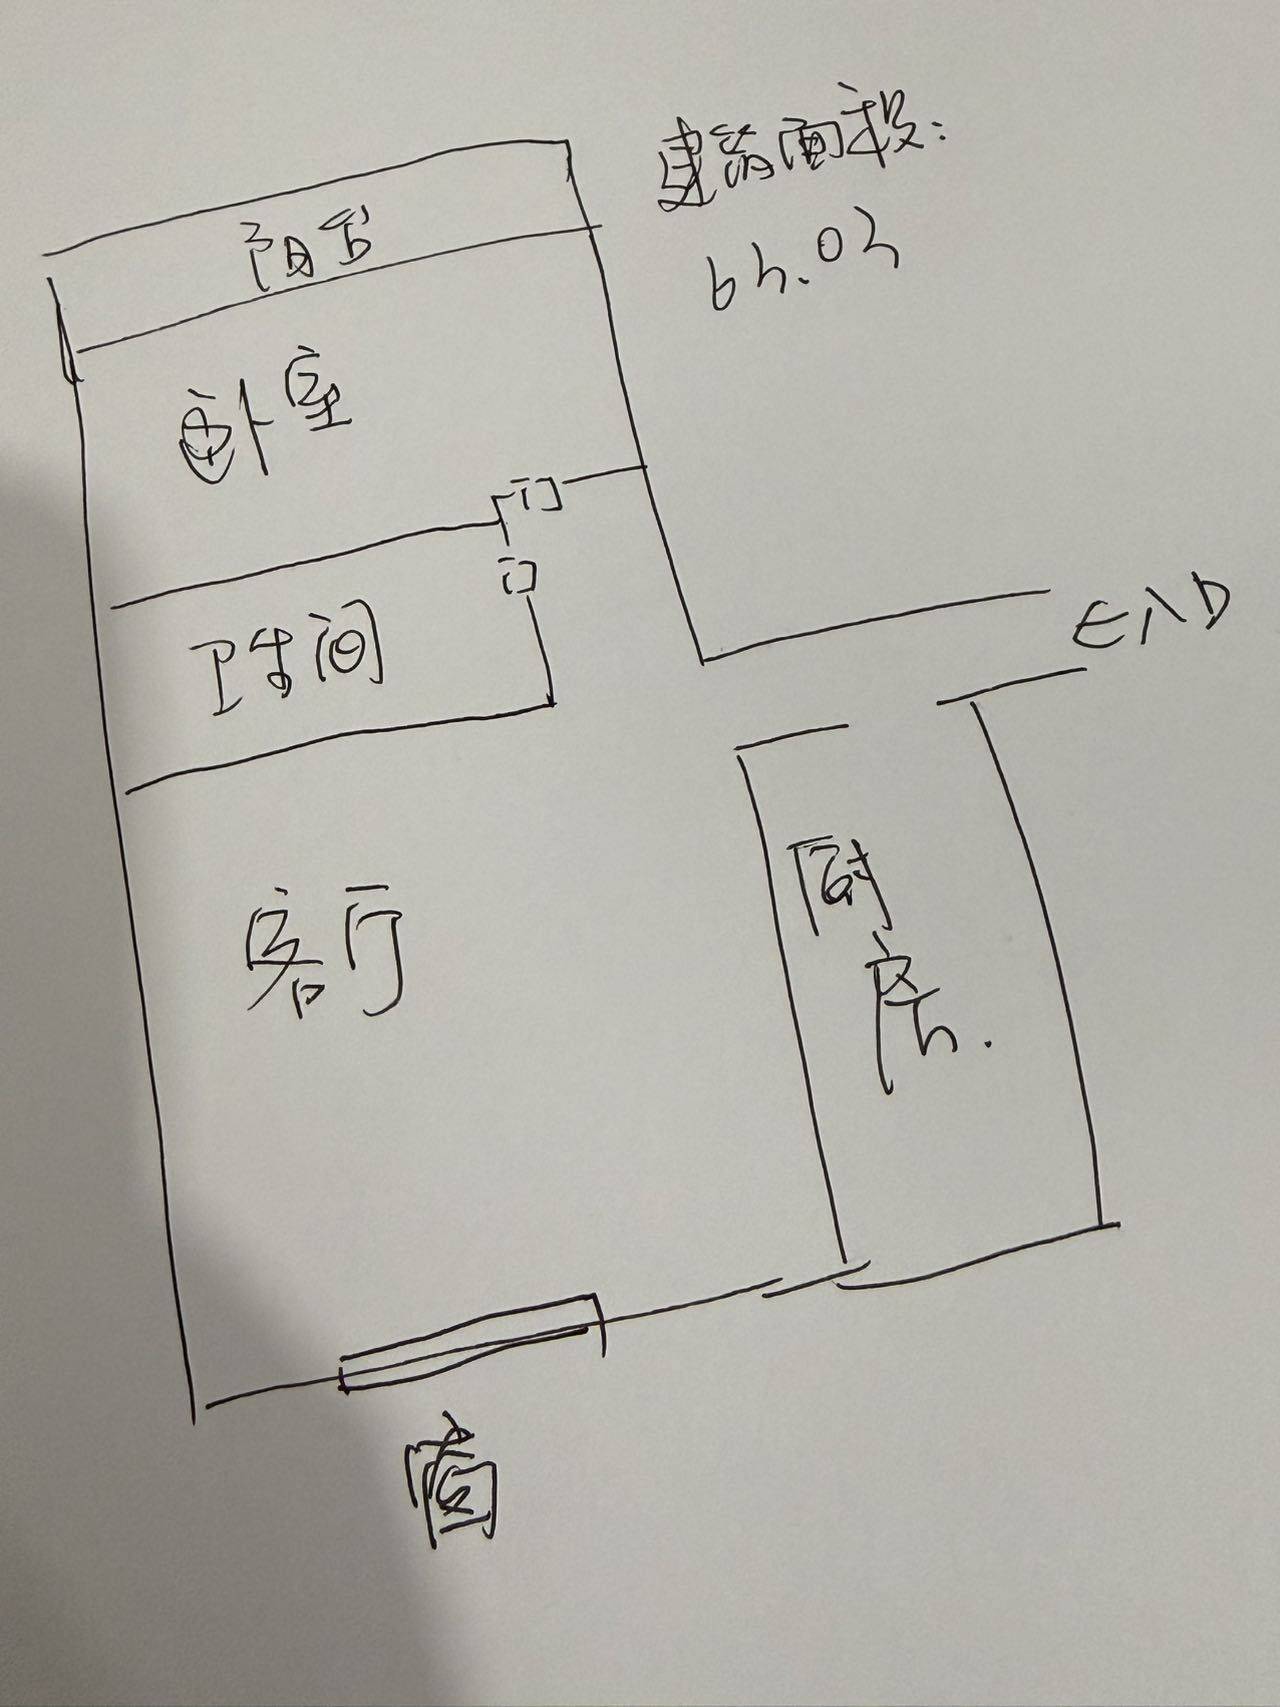 建筑面积:
阳台
卧室
门
门
卫生间
END
客厅
厨
房.
窗